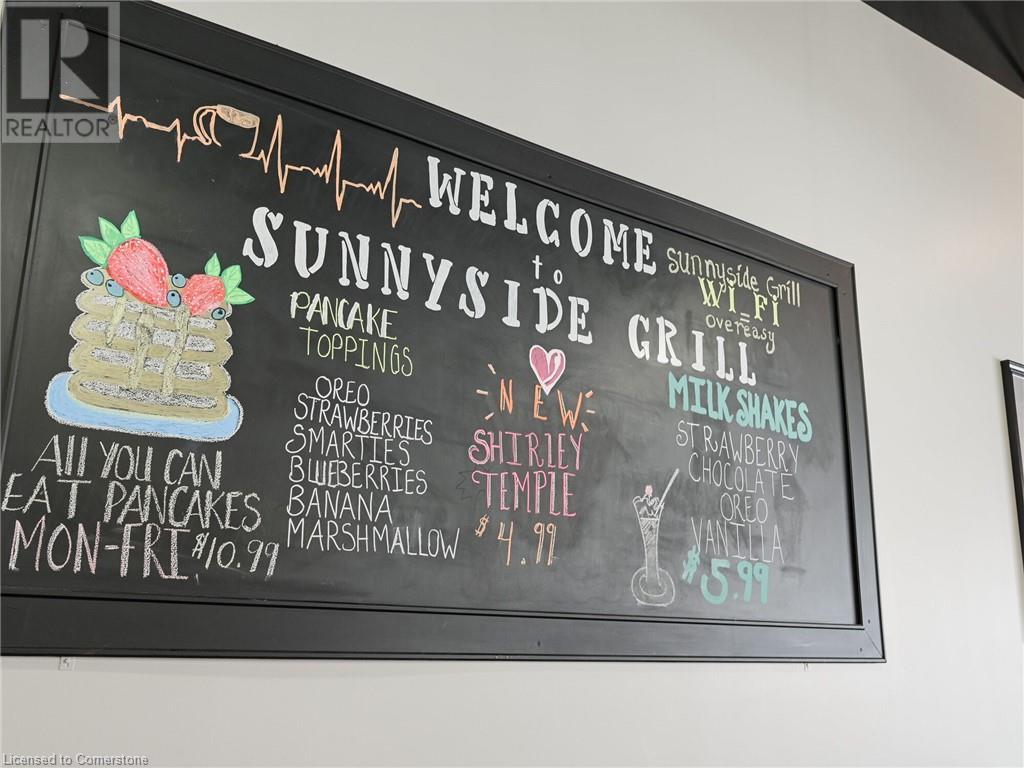 R
REALTOR®
WELCOME
to
SUNNYSIDE GRILL
sunnyside Grill
WI-FI
=
overeasy
ALL YOU CAN
EAT PANCAKES
MON-FRI $10.99
PANCAKE
TOPPINGS
OREO
STRAWBERRIES
SMARTIES
BLUEBERRIES
BANANA
MARSHMALLOW
NEW
SHIRLEY
TEMPLE
$4.99
MILKSHAKES
STRAWBERRY
CHOCOLATE
OREO
VANILLA
$5.99
Licensed to Cornerstone